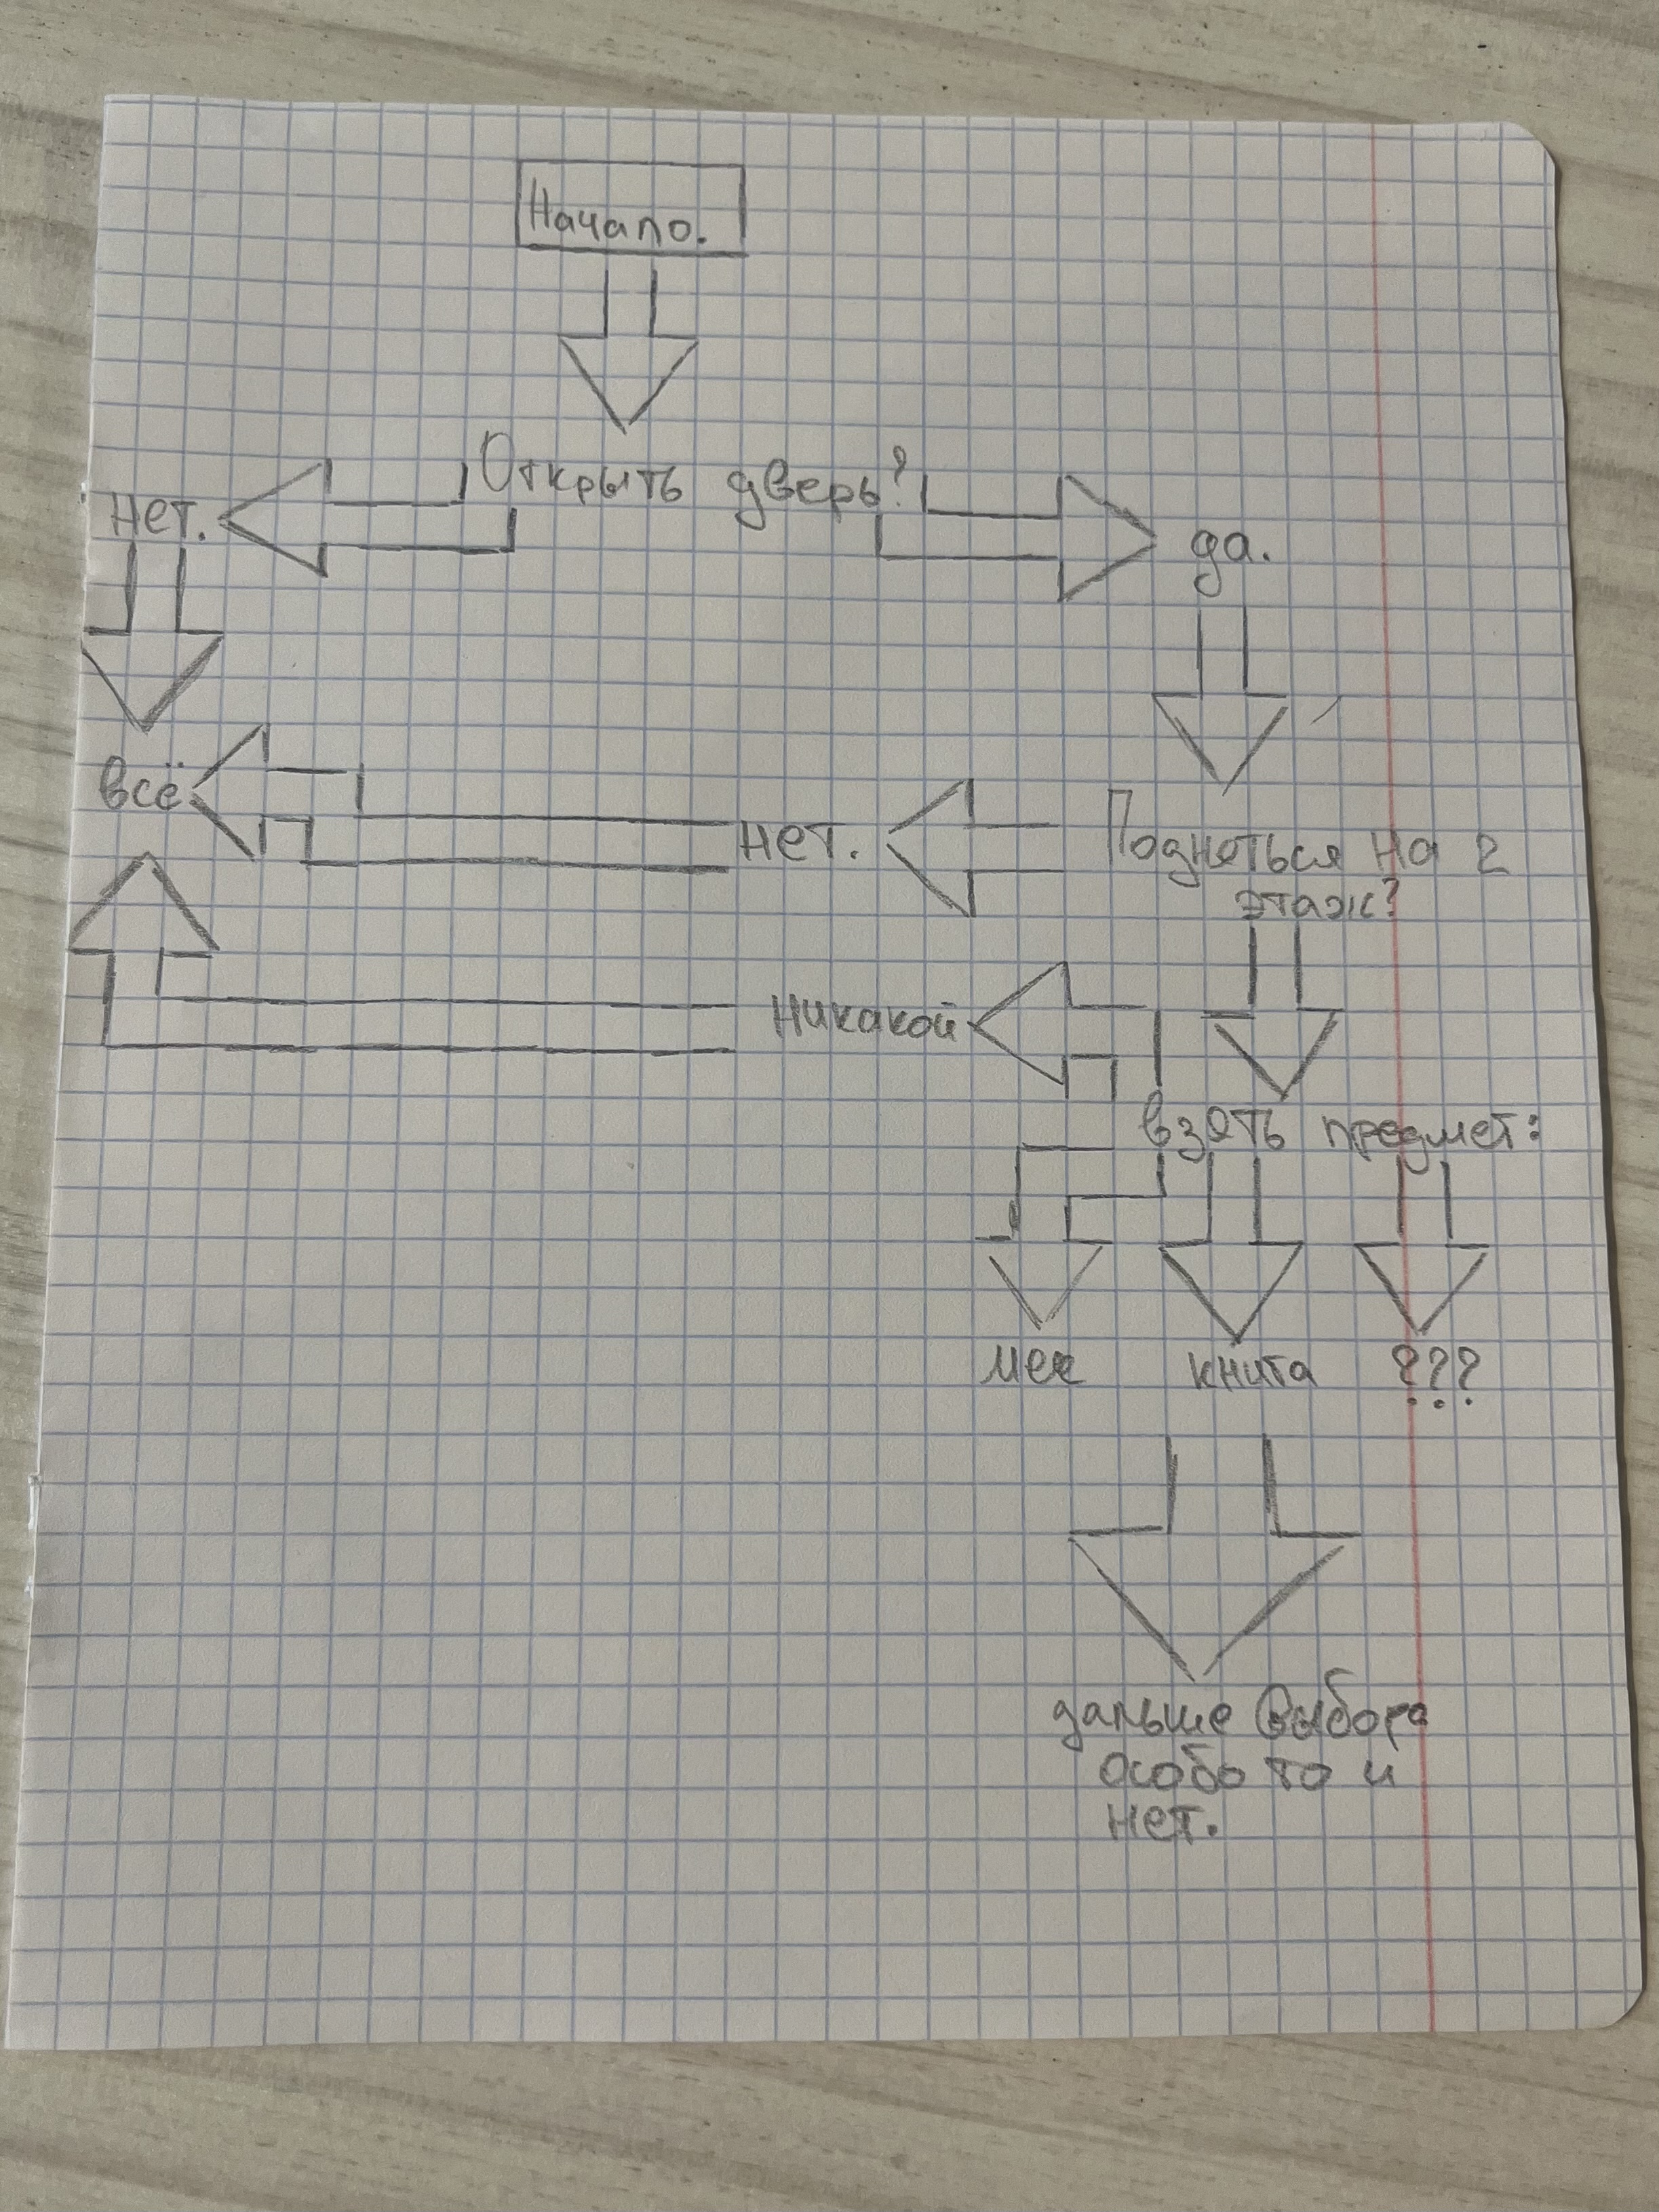 Начало.
Открыть дверь?
Нет.
да.
всё
Нет.
Подняться на 2
этаж?
Никакой
взять предмет:
меч
книга
???
дальше выбора
особо то и
нет.